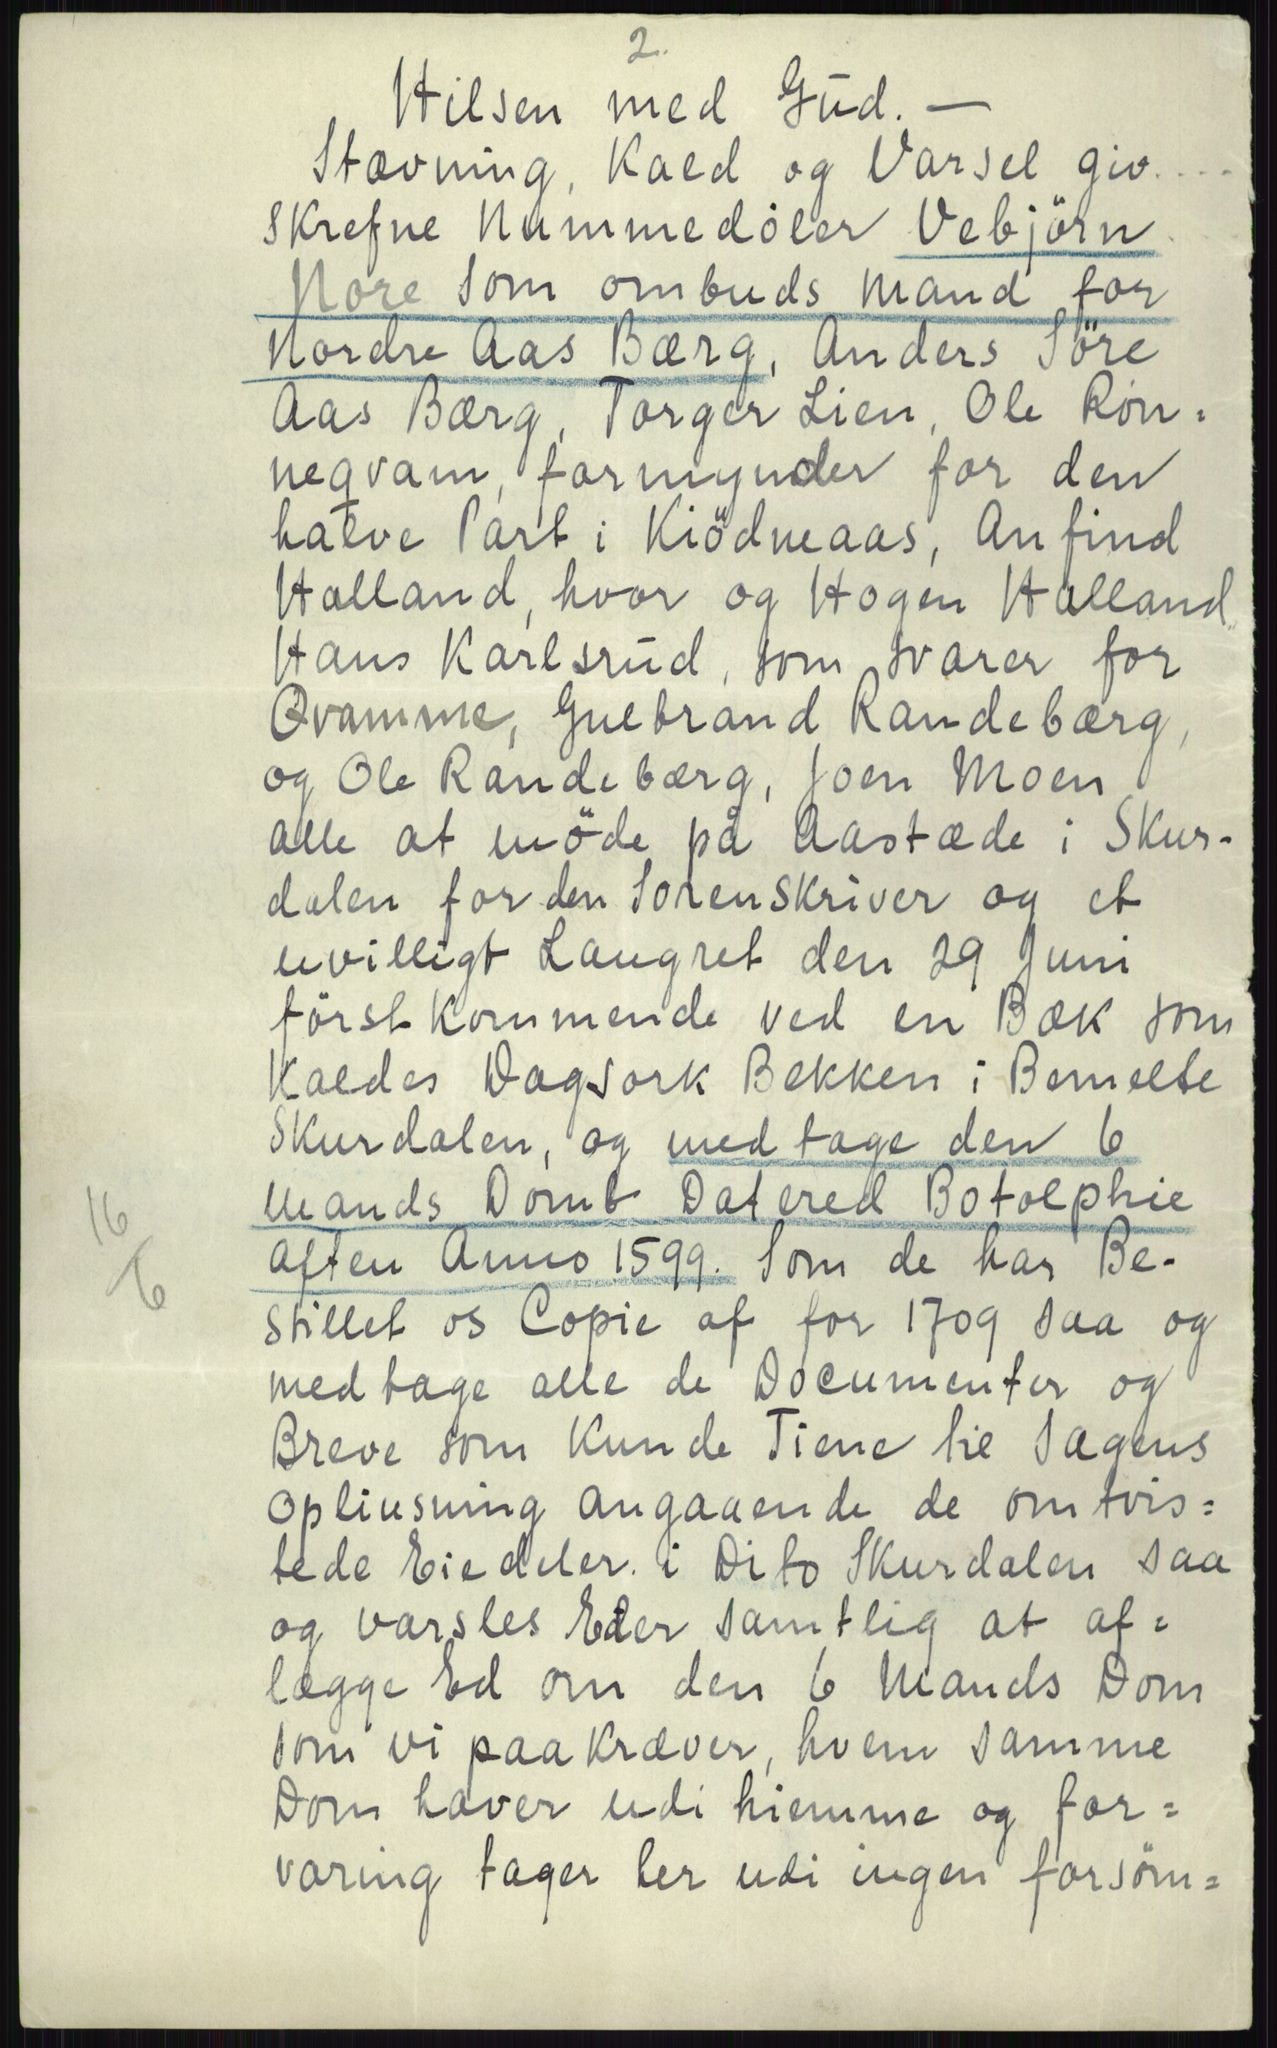 2.
Hilsen med Gūd. —
Stævning, Kald og Varsel giv....
skrefne Nummedöler Vebjörn
Nore som ombuds mand for
Nordre Aas Bærg, Anders Söre
Aas Bærg, Torger Lien, Ole Rön=
neqvam, formynder for den
halve Part i Kiödneaas, Anfind
Halland, hvor og Hogen Halland
Hans Karlsrūd, som svarer for
Qvamme, Gulbrand Randebærg,
og Ole Randebærg, Joen Moen
alle at möde på Aastæde i Skur-
dalen for den Sorenskriver og et
uvilligt Laugret den 29 Juni
förstkommende ved en Bæk som
Kaldes Dagsork Bekken i Bemelte
Skurdalen, og medtage den 6
Mands Domb Datered Botolphie
aften Anno 1599. Som de har Be-
stillet os Copie af for 1709 saa og
16/6
medtage alle de Documenter og
Breve som Kunde Tiene til Sagens
opliusning angaaende de omtvis=
tede Eiedeler. i Dito Skurdalen saa
og varsles Eder samtlig at af=
lægge Ed om den 6 Mands Dom
som vi paakræver, hvem samme
Dom haver udi hiemme og for=
varing tager her udi ingen forsöm=